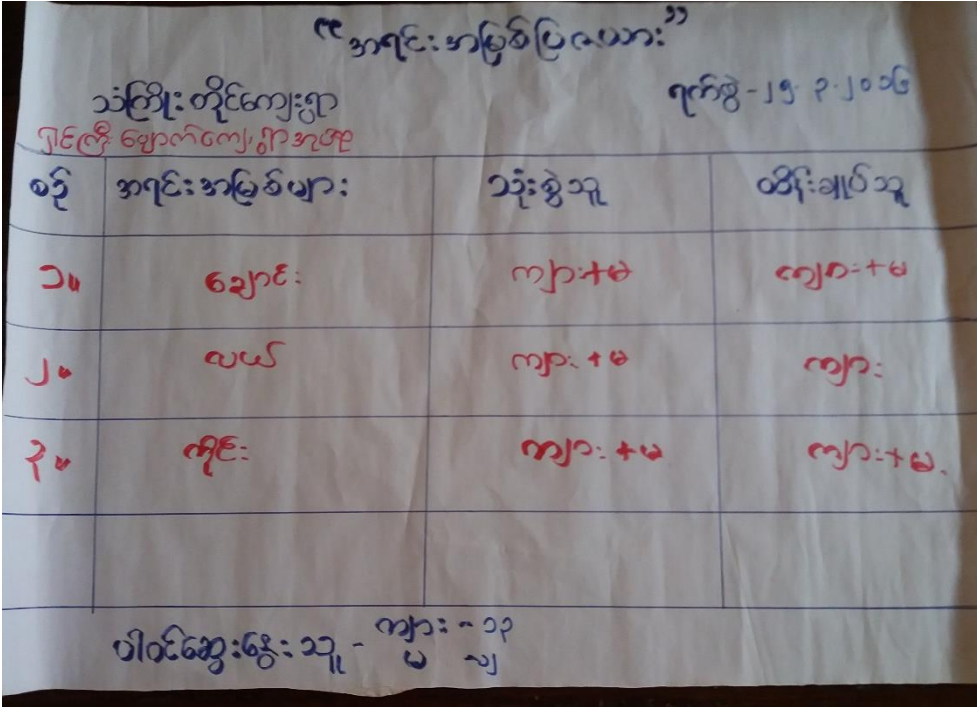 “အရင်းအမြစ်ပြဇယား”
သံကြိုးတိုင်ကျေးရွာ
ရက်စွဲ - ၂၅.၃.၂၀၁၆
ကျေးရွာအုပ်စု
စဉ် အရင်းအမြစ်များ သုံးစွဲသူ ထိန်းချုပ်သူ
၁။ ချောင်း ကျား+မ ကျား+မ
၂။ လယ် ကျား+မ ကျား
၃။ ကိုင်း ကျား+မ ကျား+မ
ပါဝင်ဆွေးနွေးသူ - ကျား - ၁၃
မ